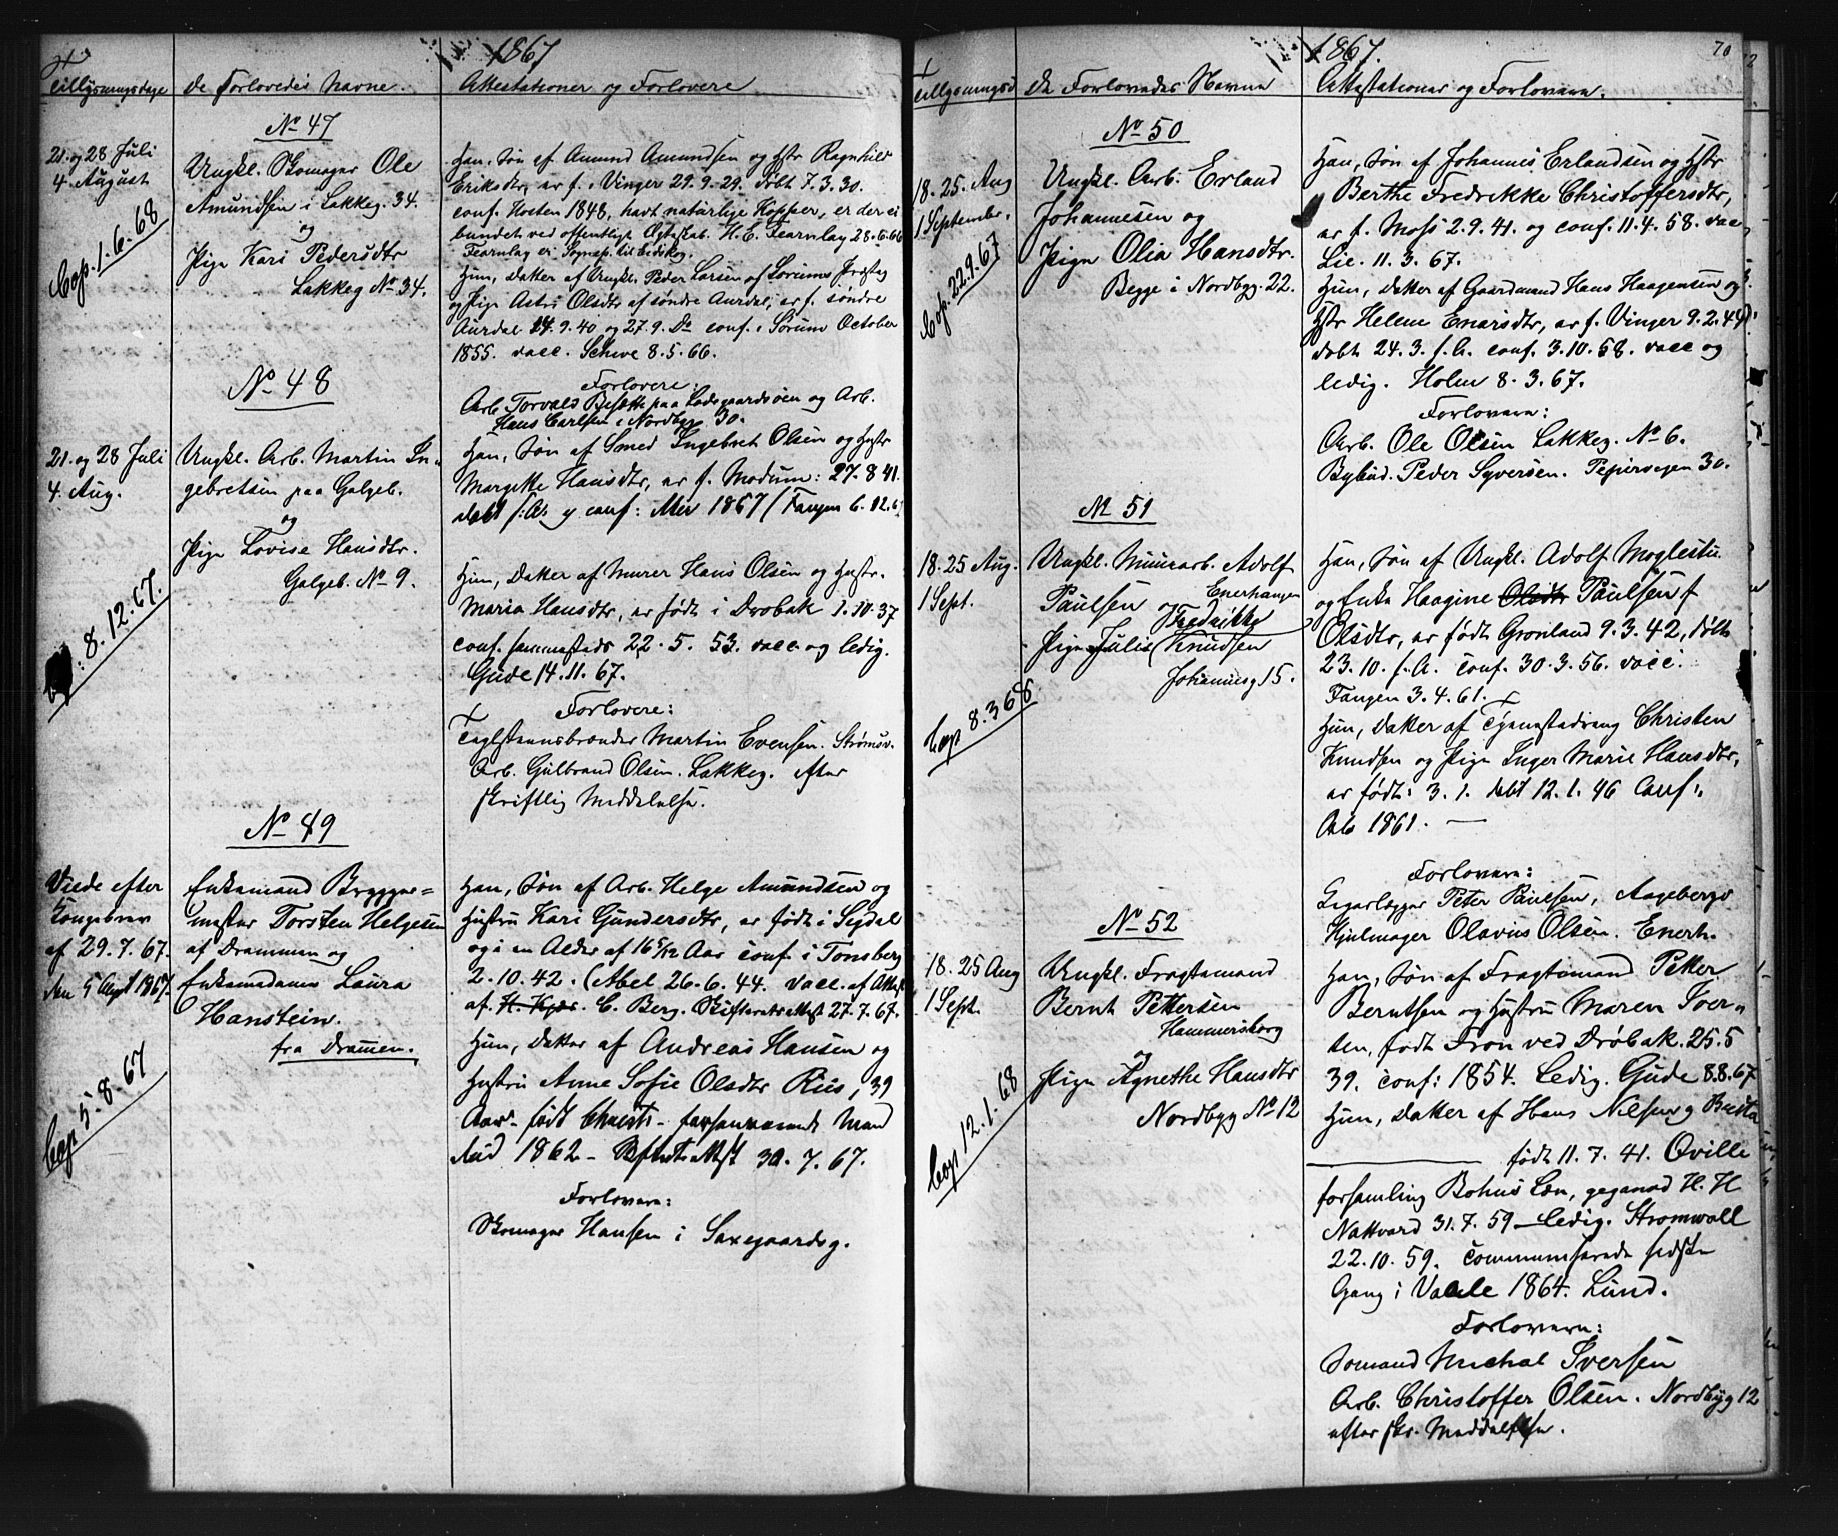 1867
Tillysningsdage De Forlovedes Navne. Attestationer og Forlovere
No 47
21. og 28 Juli
4. August
Cop. 1.6.68
Ungkl. Skomager Ole
Amundsen i Lakkeg. 34.
og
Pige Kari Pedersdtr
Lakkeg No 34.
Han, Søn af Amund Amundsen og Hstr Ragnhild
Eriksdtr, er f. i Vinger 29.9.29. døbt 7.3.30.
conf. Høsten 1848, havt naturlige Kopper, er der ei
bundet ved offentligt Ægteskab. H. E. Fearnley 28.6.66
Fearnley er Sognep. til Eidskog.
Hun, Datter af Ungkl. Peder Larsen af Sørums Præsteg
og Pige Astri Olsdtr af søndre Aurdal, er f. søndre
Aurdal 14.9.40 og 27.9. Do conf. i Sørum October
1855. vacc. Schive 8.5.66.
Forlovere:
Arb. Torvald Besætte paa Ladegaardsøen og Arb.
Hans Carlsen i Nordbyg 30.
No 48
21. og 28 Juli
4. Aug.
8.12.67.
Ungkl. Arb. Martin In-
gebretsen paa Galgeb.
og
Pige Lovise Hansdtr.
Galgeb. No 9.
Han, Søn af Smed Ingebret Olsen og Hustr
Margethe Hansdtr, er f. Modum: 27.8 41.
døbt s: A: og conf: 1857 (Fangen 6.12.6
Hun, Datter af Murer Hans Olsen og Hustr.
Maria Hansdtr, er født i Drøbak 1.10.37
conf. sammesteds 22.5.53. vacc. og ledig.
Gude 14.11.67.
Forlovere:
Teglstensbrænder Martin Evensen. Strømsv.
Arb. Gulbrand Olsen. Lakkeg. efter
skriftlig Meddelelse.
No 49
Viede efter
Kongebrev
af 29.7.67.
den 5 Augt 1867
Cop 5.8.67
Enkemand Brygger=
mester Torsten Helgesen
af Drammen og
Enkemadame Laura
Hanstein.
fra Drammen.
Han, Søn af Arb. Helge Amundsen og
Hustru Kari Gundersdtr, er født i Sigdal
og i en Alder af 16 5/12 Aar conf. i Tønsberg
2.10.42. (Abel 26.6.44. vacc. af Attest
af C. Berg. Skifteretsattest 27.7.67.
Hun, Datter af Andreas Hansen og
Hustru Anne Sofie Olsdtr Riis, 39
Aar - født Christi - forhenværende Mand
død 1862 - Skfteretsattest 30.7.67.
Forlovere:
Skomager Hansen i Saxegaardsg.
1867. 70
Tillysningsd De Forlovedes Navne Attestationer og Forlovere.
No 50
18. 25. Aug
1 Septembr.
Cop. 22.9.67
Ungkl. Arb. Erland
Johannesen og
Pige Olia Hansdtr.
Begge i Nordbyg. 22.
Han, Søn af Johannes Erlandsen og Hstr
Berthe Fredrikke Christoffersdtr,
er f. Moss 2.9.41. og conf. 11.4.58. vacc
Lie. 11.3.67.
Hun, Datter af Gaardmand Hans Haagensen og
Hstr Helene Enarsdtr, er f. Vinger 9.2.44
døbt 24.3. s. A. conf. 3.10.58. vacc og
ledig. Holm 8.3.67.
Forlovere:
Arb. Ole Olsen Lakkeg. No 6.
Bybud. Peder Syversen. Pepervegen 30.
No 51
18. 25 Aug.
1 Sept.
Cop 8.3 68
Ungkl. Muurarb. Adolf
Paulsen Enerhaugen
og Fredrikke
Pige Julie Knudsen
Johannesg 15.
Han, Søn af Ungkl. Adolf Moglestu
og Enke Haagine Olsdtr Paulsen f
Olsdtr, er født Grønland 9.3.42, døbt
23.10. s. A. conf. 30.3.56. vacc.
Fangen 3.4.61.
Hun, Datter af Tjenestedreng Christen
Knudsen og Pige Inger Marie Hansdtr,
er født: 3.1. døbt 12.1.46 Conf:
Oslo 1861.
Forlovere:
Segarlægger Peter Paulsen, Aagebergv
Hjulmager Olavus Olsen. Enerh.
No 52
18. 25 Aug
1 Sept.
Cop 12.1.68
Ungkl. Fragtemand
Bernt Pettersen
Hammersborg
og
Pige Agnethe Hansdtr
Nordbyg No 12
Han, Søn af Fragtemand Petter
Berntsen og Hustru Maren Iver-
sen, født Fron ved Drøbak. 25.5
39. conf: 1854. Ledig. Gude 8.8.67
Hun, Datter af Hans Nilsen og Britta
født 11.7.41. Qville
forsamling Bohus Len, gegenod H. H
Nattvard 31.7.59 - ledig. Strømwall
22.10.59. Communiserede sidste
Gang i Vaale 1864. Lund.
Forlovere:
Sømand Michal Iversen
Arb. Christoffer Olsen. Nordbyg 12
efter skr. Meddelelse.